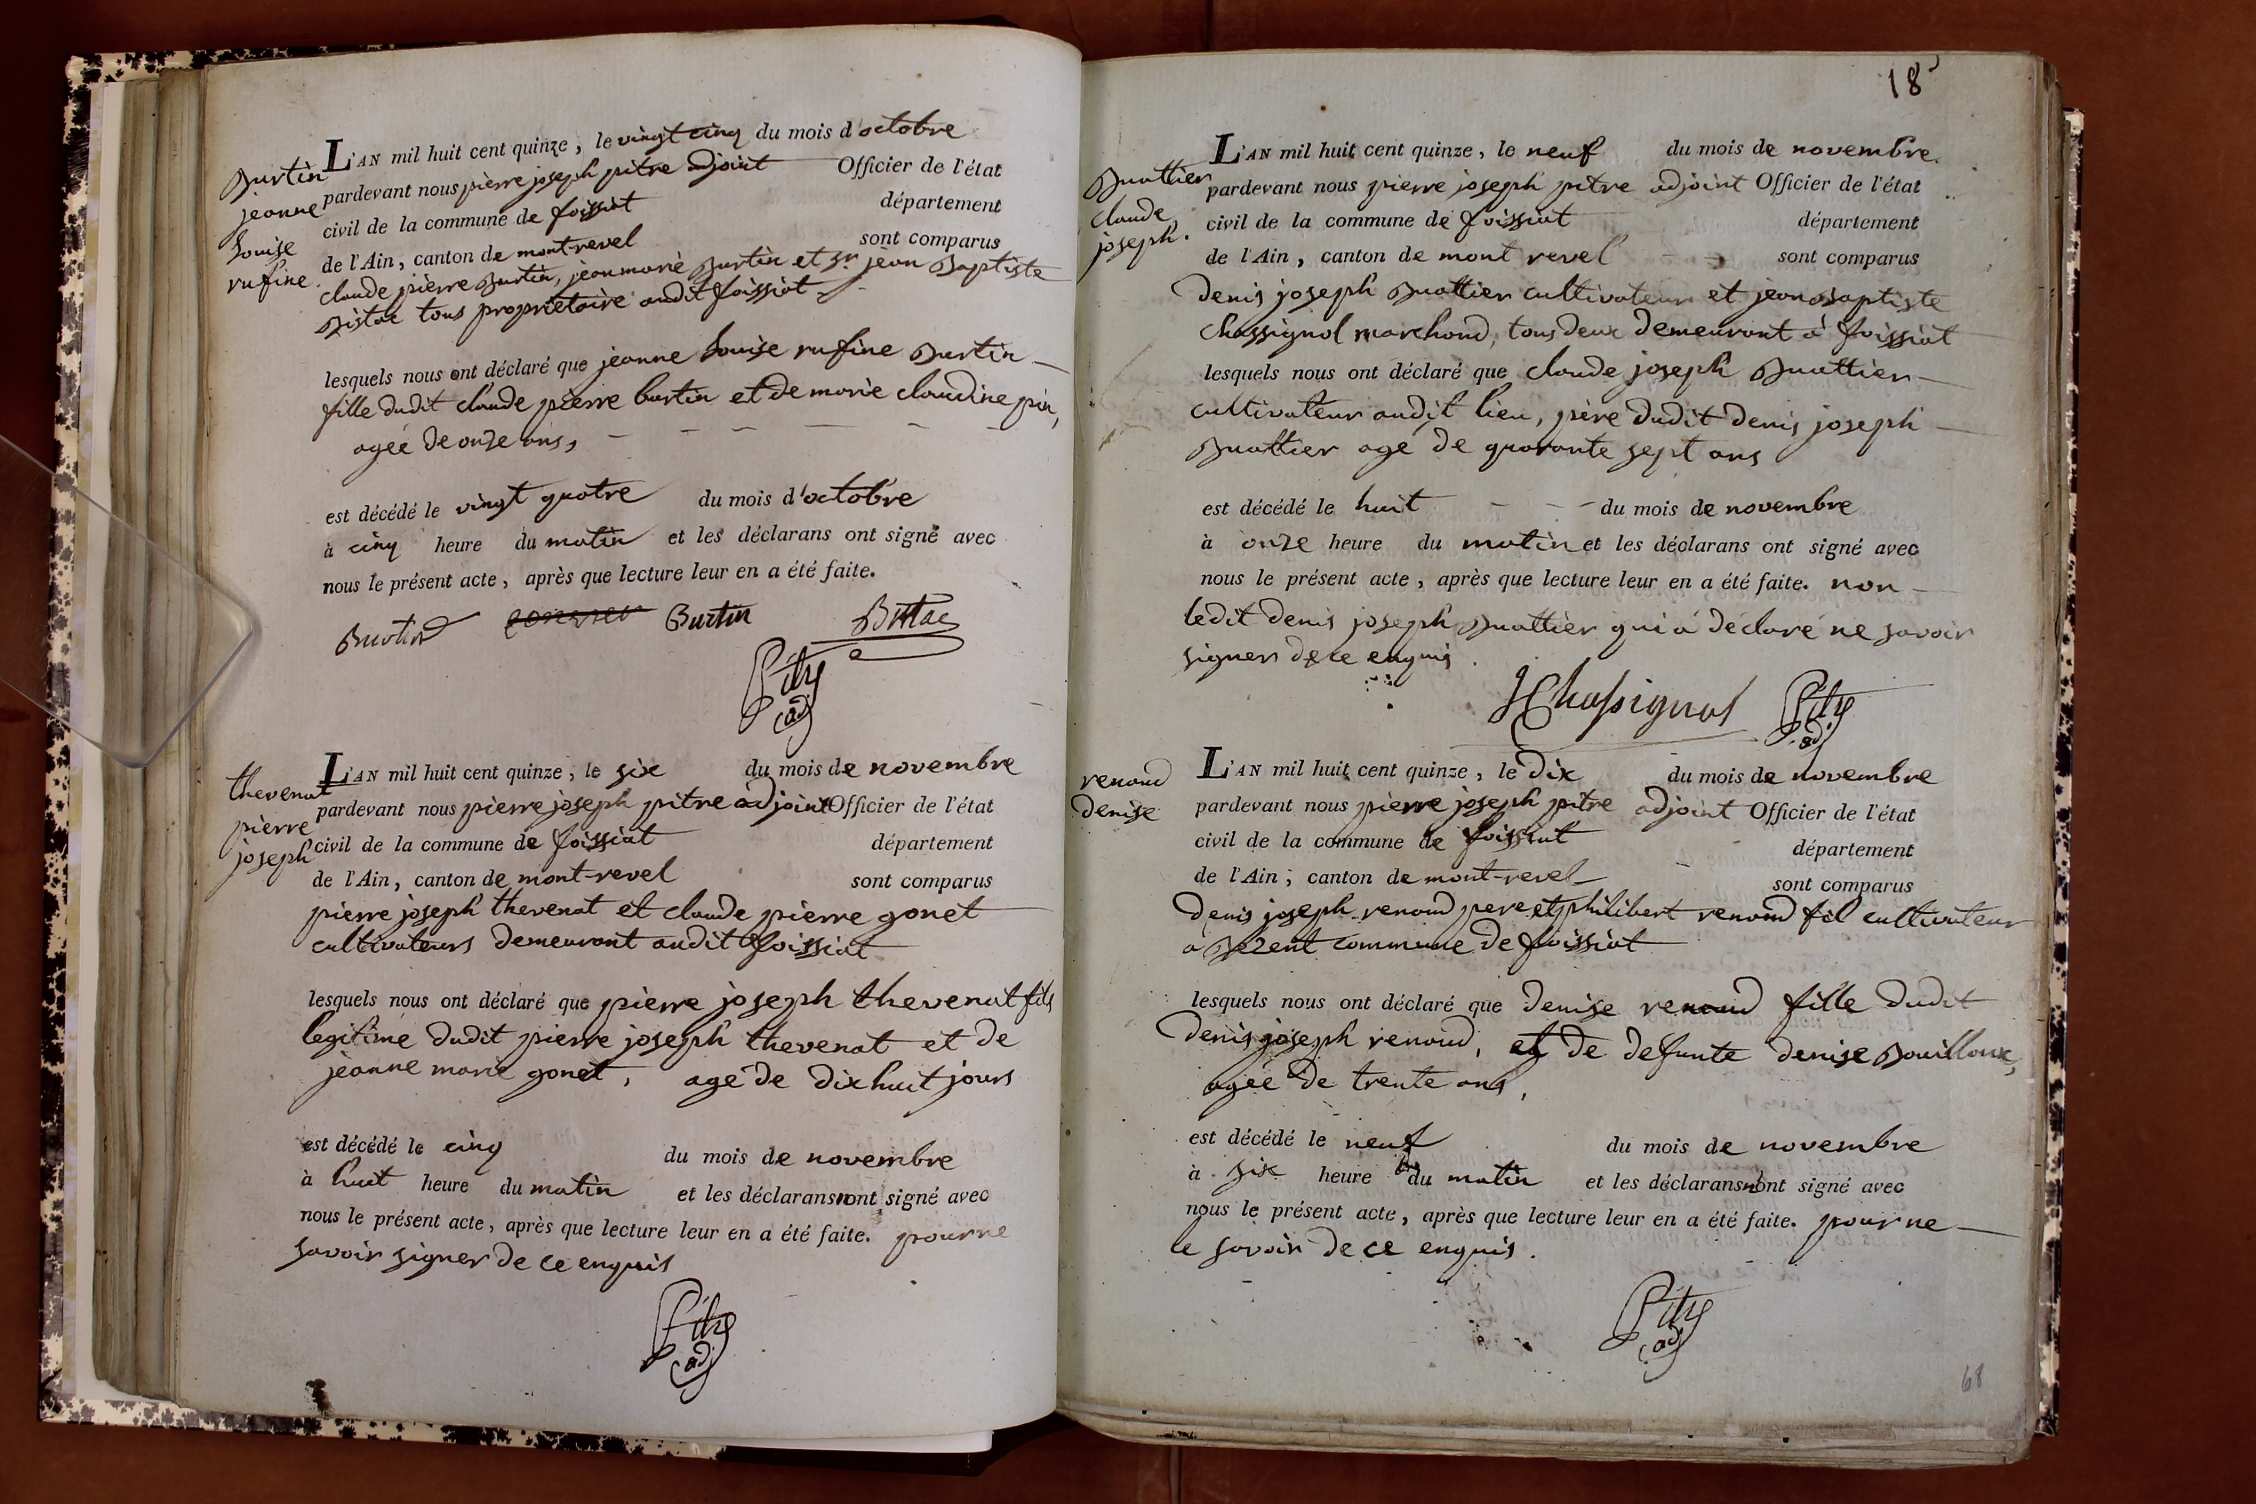 Burtin
jeanne
Louise
rufine
L'AN mil huit cent quinze, le vingt cinq du mois d'octobre
pardevant nous pierre joseph pitre adjoint Officier de l'état
civil de la commune de foissiat département
de l'Ain, canton de mont-revel sont comparus
claude pierre Burtin, jean marie Burtin et Sr. jean Baptiste
Bistac tous propriétaire audit foissiat
lesquels nous ont déclaré que jeanne Louise rufine Burtin
fille dudit claude pierre burtin et de marie claudine pin,
agée de onze ans,
est décédé le vingt quatre du mois d'octobre
à cinq heure du matin et les déclarans ont signé avec
nous le présent acte, après que lecture leur en a été faite.
Burtin Burtin Bistac
Pitre
adj
thevenat
pierre
joseph
L'AN mil huit cent quinze, le six du mois de novembre
pardevant nous pierre joseph pitre adjoint Officier de l'état
civil de la commune de foissiat département
de l'Ain, canton de mont-revel sont comparus
pierre joseph thevenat et claude pierre gonet
cultivateurs demeurant audit foissiat
lesquels nous ont déclaré que pierre joseph thevenat fils
legitime dudit pierre joseph thevenat et de
jeanne marie gonet, agé de dix huit jours
est décédé le cinq du mois de novembre
à huit heure du matin et les déclarans n'ont signé avec
nous le présent acte, après que lecture leur en a été faite. pour ne
savoir signer de ce enquis
Pitre
adj
18
Buattier
claude
joseph.
L'AN mil huit cent quinze, le neuf du mois de novembre
pardevant nous pierre joseph pitre adjoint Officier de l'état
civil de la commune de foissiat département
de l'Ain, canton de mont revel sont comparus
Denis joseph Buattier cultivateur et jean Baptiste
Chassignol marchand, tous deux demeurant à foissiat
lesquels nous ont déclaré que claude joseph Buattier
cultivateur audit lieu, père dudit denis joseph
Buattier agé de quarante sept ans
est décédé le huit du mois de novembre
à onze heure du matin et les déclarans ont signé avec
nous le présent acte, après que lecture leur en a été faite. non
ledit denis joseph Buattier qui a déclaré ne savoir
signer de ce enquis.
JChassignol Pitre
adj
renoud
denise
L'AN mil huit cent quinze, le dix du mois de novembre
pardevant nous pierre joseph pitre adjoint Officier de l'état
civil de la commune de foissiat département
de l'Ain, canton de mont-revel sont comparus
denis joseph renoud pere et philibert renoud fil cultivateur
à Bezent commune de foissiat
lesquels nous ont déclaré que denise renoud fille dudit
denis joseph renoud, et de defunte denise Bouilloux,
agée de trente ans,
est décédé le neuf du mois de novembre
à six heure du matin et les déclarans n'ont signé avec
nous le présent acte, après que lecture leur en a été faite. pour ne
le savoir de ce enquis.
Pitre
adj
68